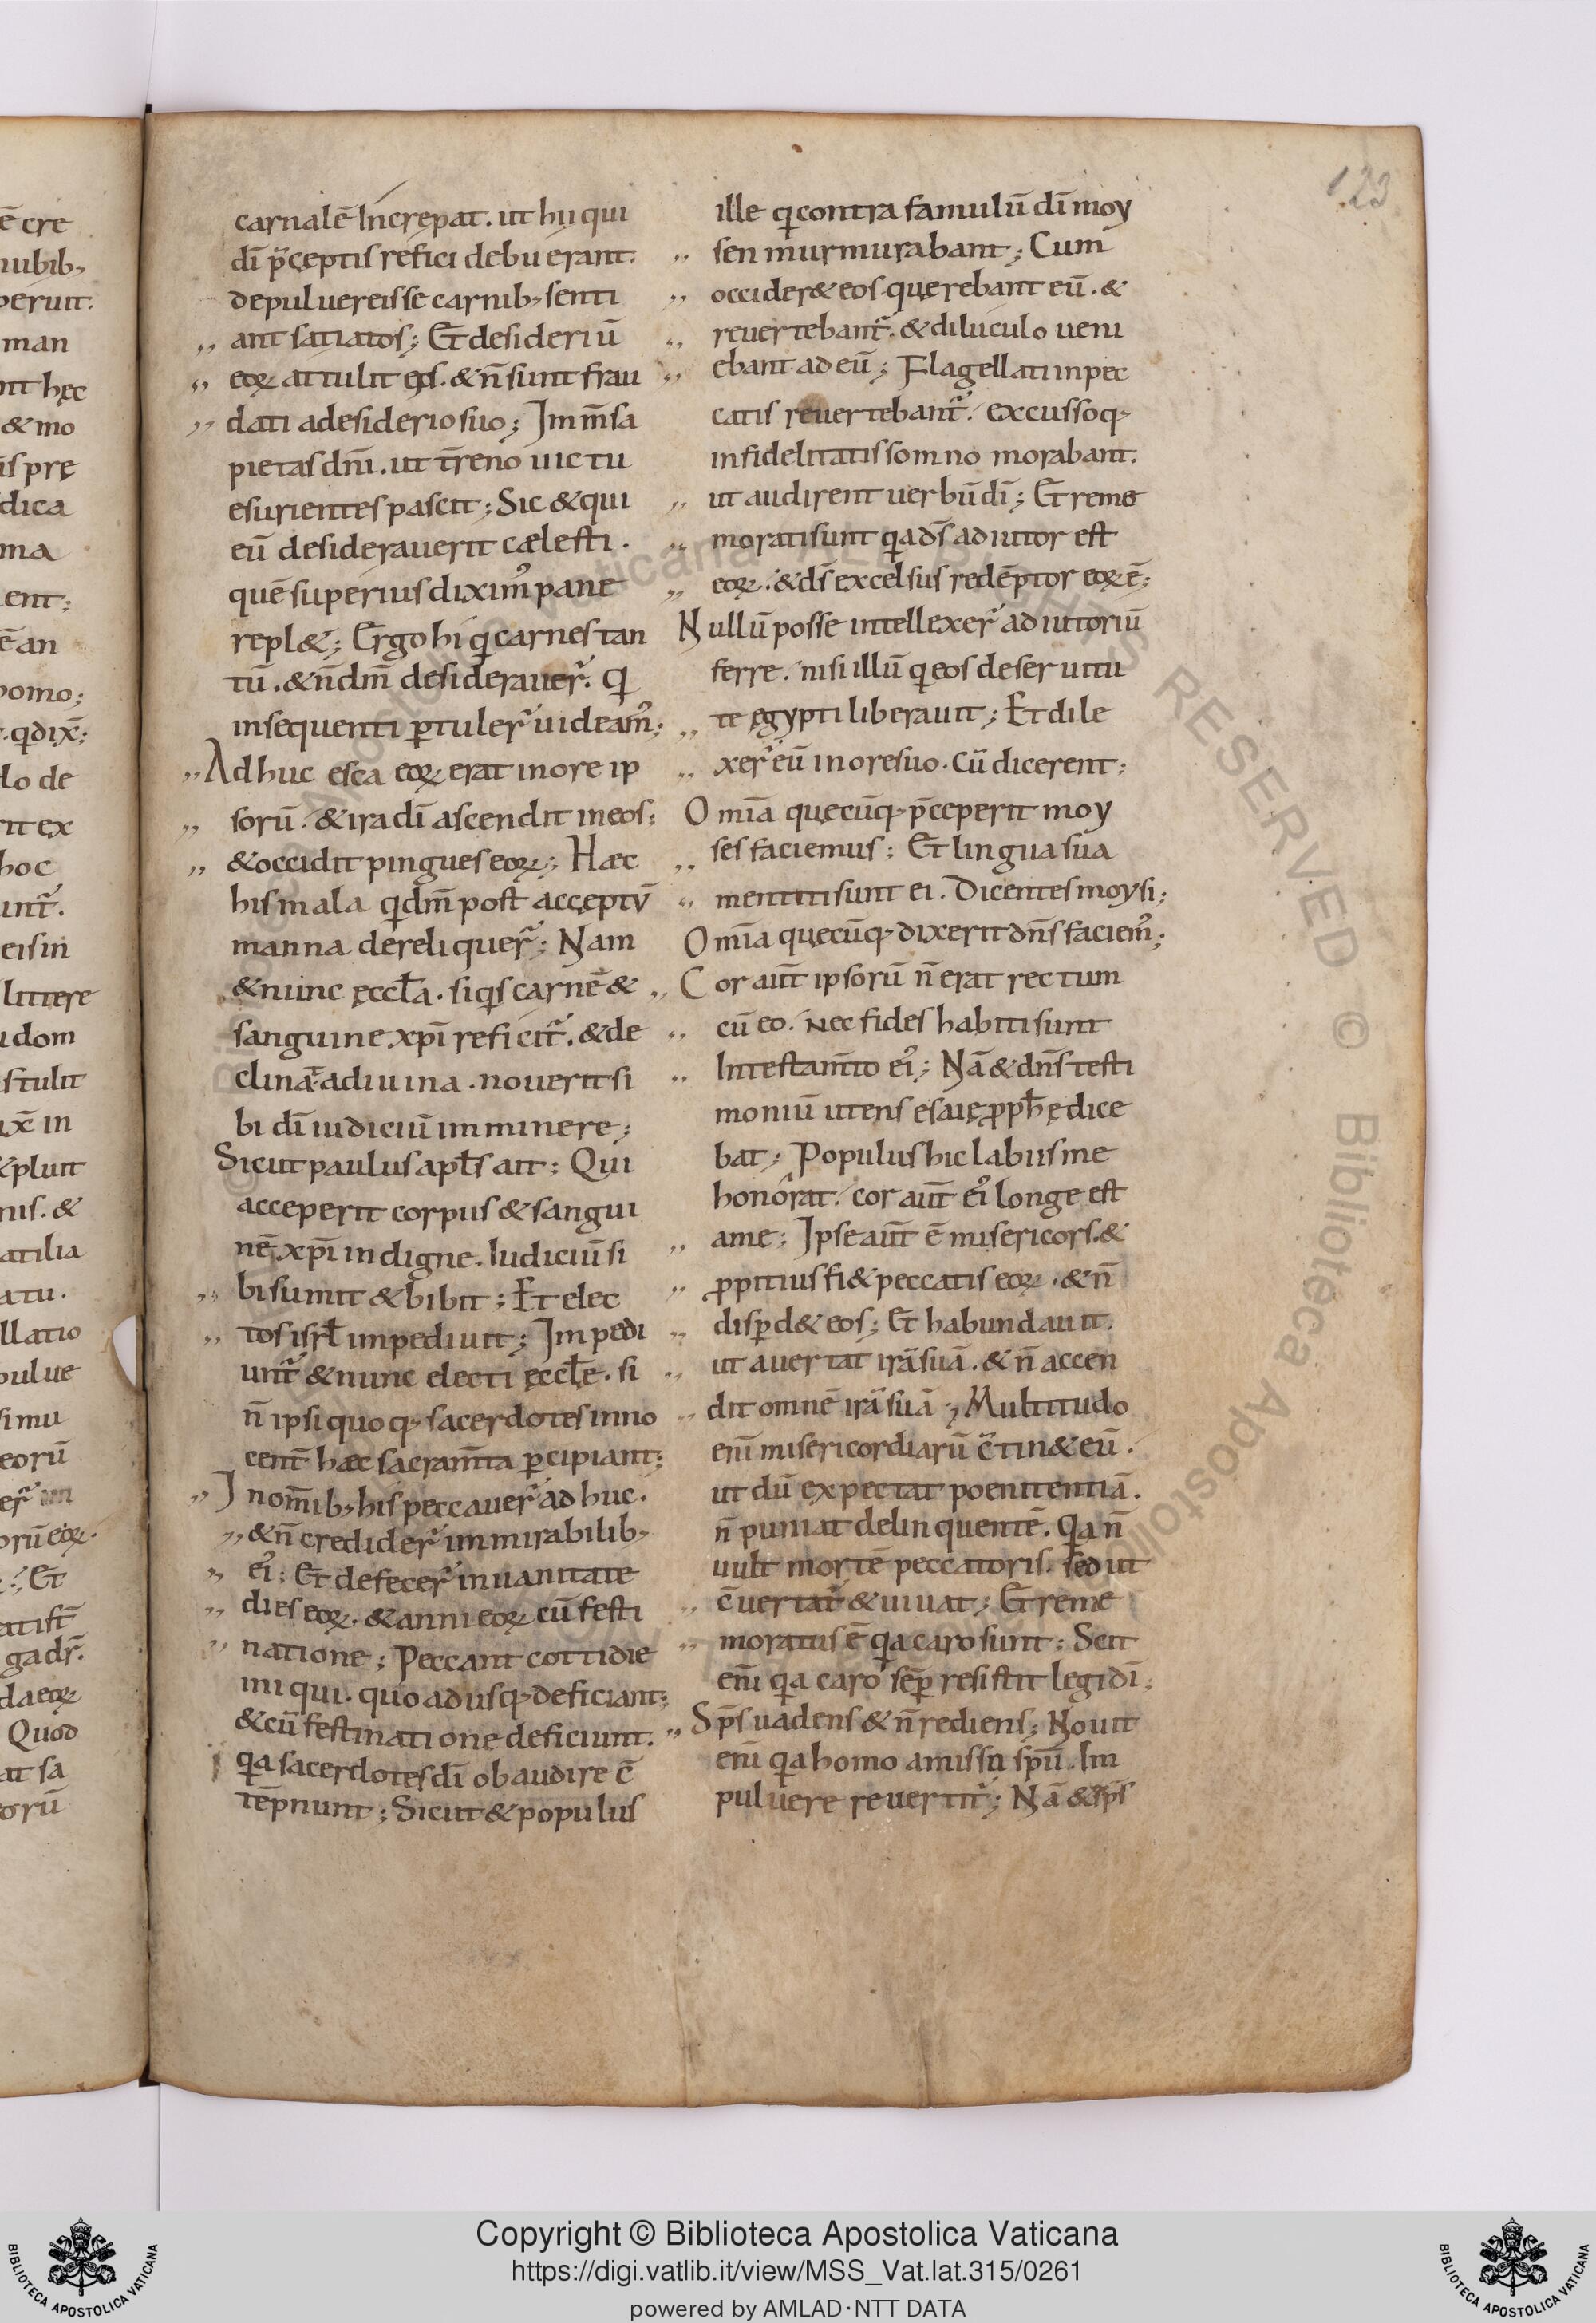 carnalē Increpat. ut hii qui
dī p̄ceptis refici debuerant.
depuluereisse carnib; senti
ant satiatos; Et desideriū
eoꝝ attulit eis. & n̄ sunt frau
dati adesiderio suo; Im̄nsa
pietas dn̄i. ut tr̄eno uictu
esurientes pascit; Sic & qui
eū desiderauerit cælesti.
quē superius dixim᾽ pane
repl&; Ergo hi qi carnes tan
tū. & n̄ dn̄m desiderauer̄. qi
insequenti ꝑtuler̄ uideam᾽;
Adhuc esca eoꝝ erat inore ip
sorū. & ira dī ascendit in eos;
& occidit pingues eoꝝ; Hæc
his mala qdm̄ post acceptū
manna dereliquer̄; Nam
& nunc ęccła. siqis carnē &
sanguine xp̄i reficit̄. & de
clinat̄ adiuina. nouerit si
bi dī iudiciū imminere;
Sicut paulus apłs ait; Qui
acceperit corpus & sangui
nē xp̄i indigne. Iudiciū si
bi sumit & bibit; Et elec
tos isrł impediuit; Impedi
unt̄ & nunc electi ęccłe. si
n̄ ipsi quoq; sacerdotes inno
cent̄ hæc sacram̄ta ꝑcipiant;
In om̄ib; his peccauer̄ ad huc.
& n̄ credider̄ in mirabilib;
ei᾽; Et defecer̄ inuanitate
dies eoꝝ. & anni eoꝝ cū festi
natione; Peccant cottidie
iniqui. quo adusq; deficiant;
& cū festinatione deficiunt.
qa sacerdotes dī obaudire c̄
tēpnunt; Sicut & populus
ille qi contra famulū dī moy
sen murmurabant; Cum
occider& eos. querebant eū. &
reuertebant̄. & diluculo ueni
ebant ad eū; Flagellati inpec
catis reuertebant̄. excussoq;
infidelitatis somno morabant.
ut audirent uerbū dī; Et reme
morati sunt qa ds̄ adiutor est
eoꝝ. & ds̄ excelsus redēptor eoꝝ ē;
Nullū posse intellexer̄ adiutoriū
ferre. nisi illū qi eos deseruitu
te ęgypti liberauit; Et dile
xer̄ eū inore suo. Cū dicerent;
Om̄ia quecūq; p̄ceperit moy
ses faciemus; Et lingua sua
mentiti sunt ei. Dicentes moysi;
Om̄ia quecūq; dixerit dn̄s faciem᾽;
Cor aūt ipsorū n̄ erat rectum
cū eo. Nec fides habiti sunt
Intestam̄to ei᾽; Nā & dn̄s testi
moniū utens esaię ꝓpħę dice
bat; Populus hic labiis me
honorat. cor aūt ei᾽ longe est
ame; Ipse aūt ē misericors. &
ꝓpitius fi& peccatis eoꝝ. & n̄
disꝑd& eos; Et habundauit.
ut auertat irā suā. & n̄ accen
dit omnē irā suā; Multitudo
eni᾽ misericordiarū c̄tin& eū.
ut dū expectat poenitentiā.
n̄ puniat delinquentē. Qa n̄
uult mortē peccatoris. sed ut
c̄uertat̄ & uiuat; Et reme
moratus ē qa caro sunt; Scit
eni᾽ qa caro sēꝑ resistit legi dī;
Sp̄s uadens & n̄ rediens; Nouit
eni᾽ qa homo amisso sp̄u. In
puluere reuertit̄; Nā & sp̄s
123
Copyright © Biblioteca Apostolica Vaticana
https://digi.vatlib.it/view/MSS_Vat.lat.315/0261
powered by AMLAD·NTT DATA